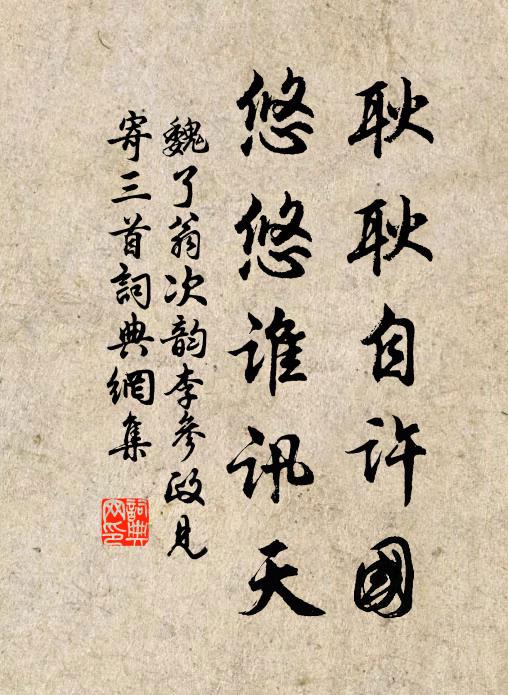 耿耿自许國
悠悠谁讯天
魏了翁次韵李參政見
寄三首詞典網集
詞典
网印